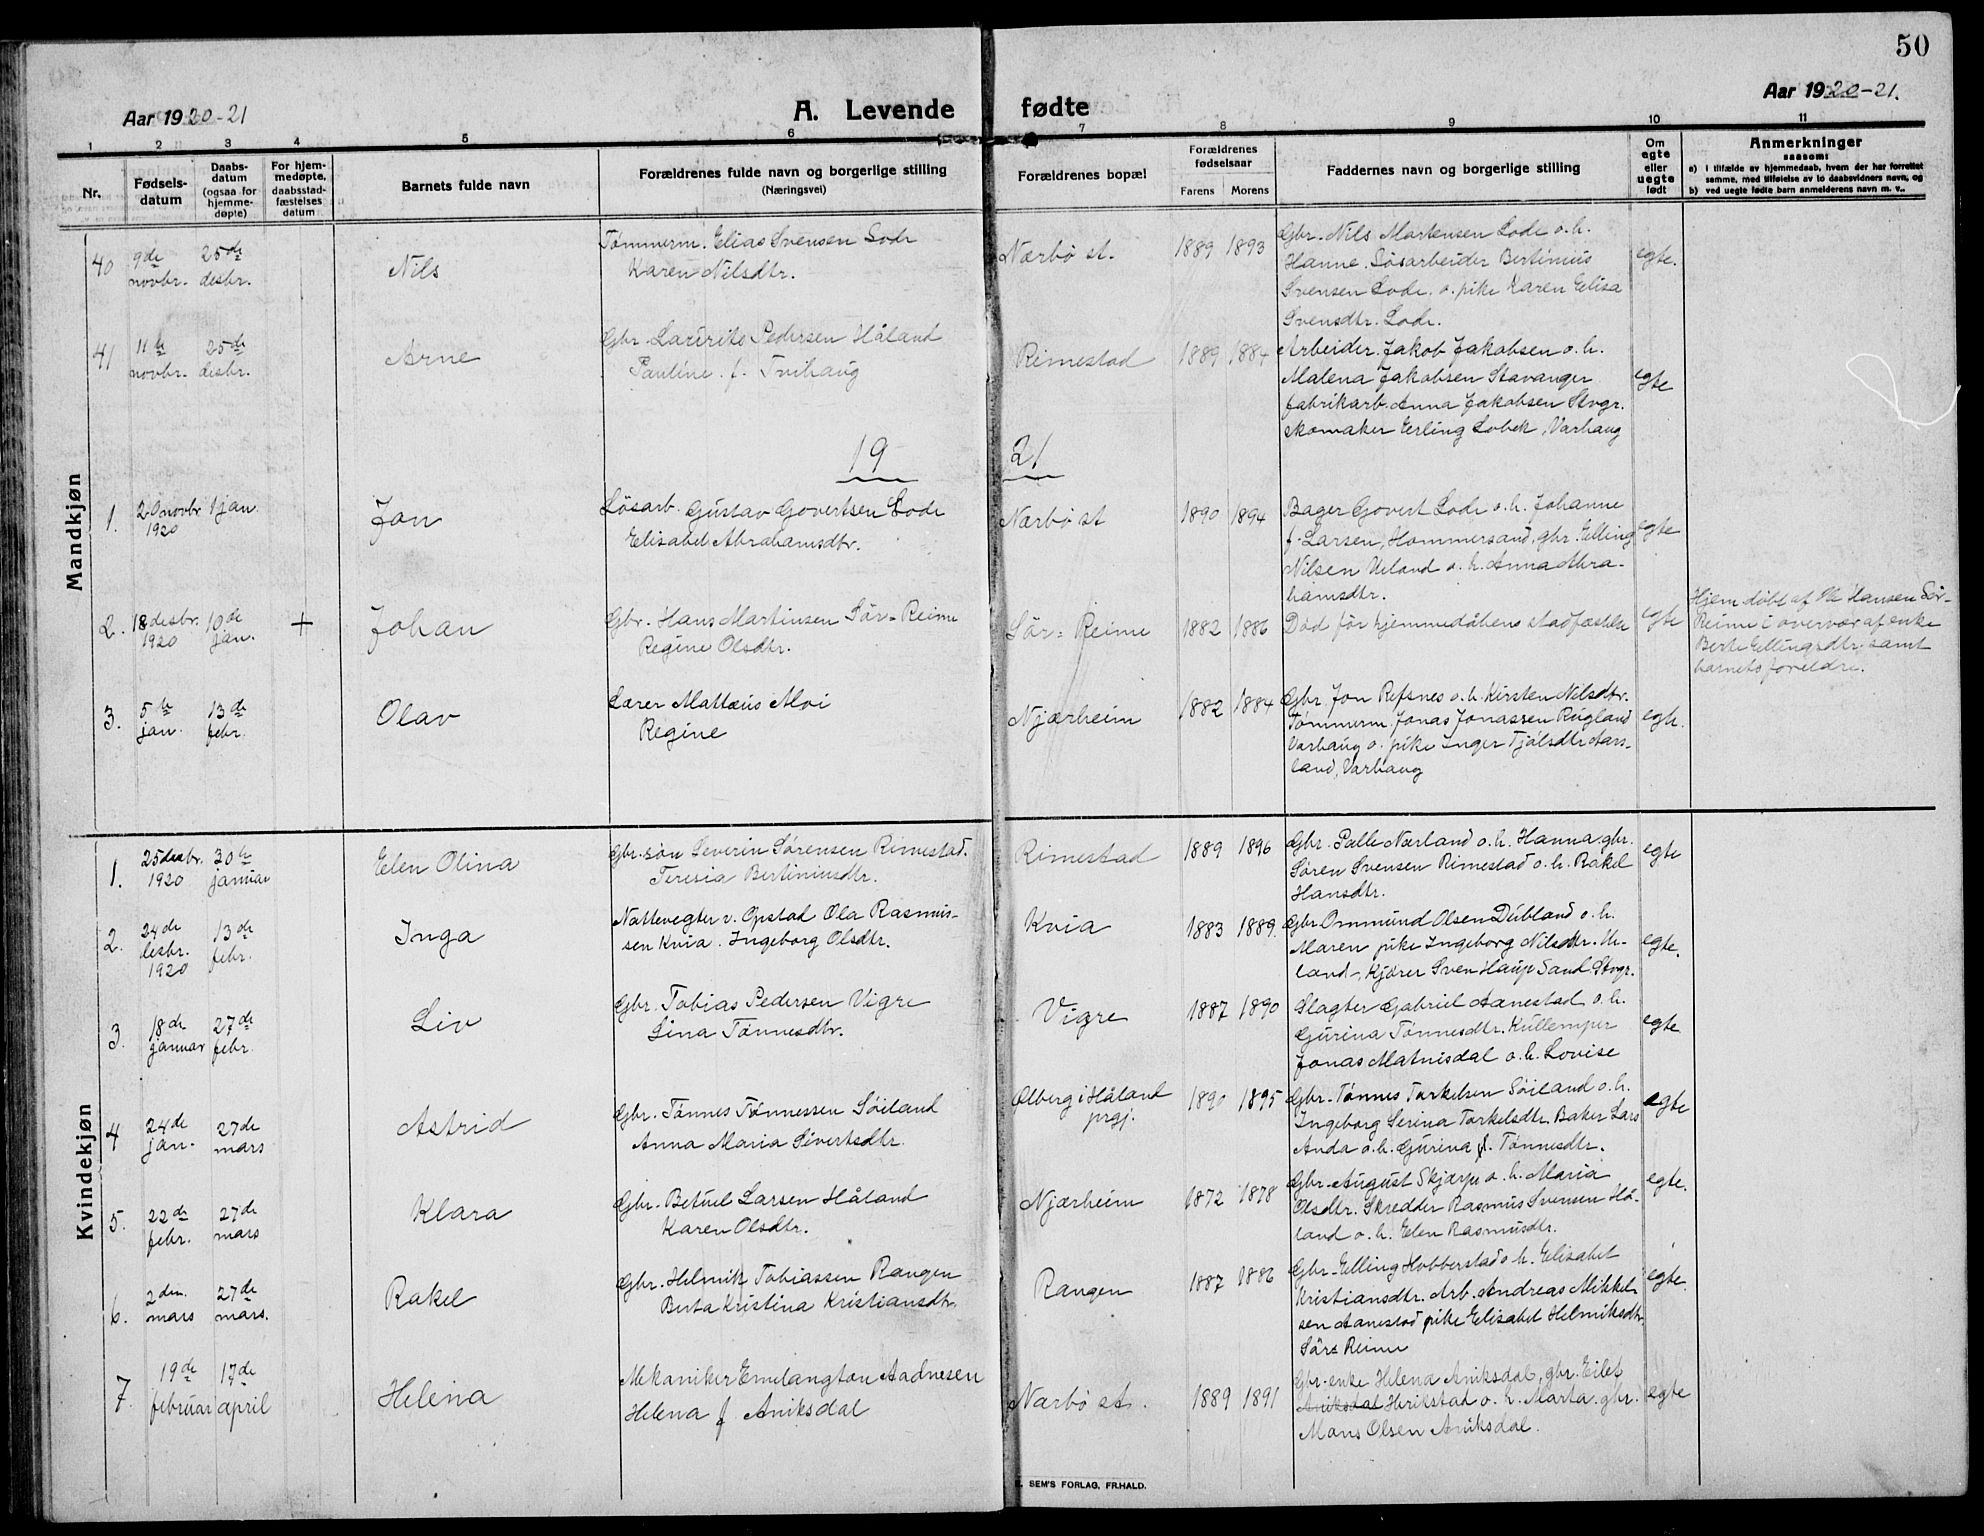 50
Aar 1920-21
A. Levende fødte
Aar 1920-21.
1 2 3 4 5 6 7 8 9 10 11
Nr.
Fødsels-
datum
Daabs-
datum
(ogsaa for
hjemme-
døpte)
For hjem-
medøpte,
daabsstad-
fæstelses
datum
Barnets fulde navn
Forældrenes fulde navn og borgerlige stilling
(Næringsvei)
Forældrenes bopæl
Forældrenes
fødselsaar
Farens Morens
Faddernes navn og borgerlige stilling
Om
egte
eller
uegte
født
Anmerkninger
saasom:
a) i tilfælde av hjemmedaab, hvem der har forrettet
samme, med tilføielse av to daabsvidners navn, og
b) ved uegte fødte barn anmelderens navn m. v..
Mandkjøn
40
9de
novbr.
25de
desbr.
Nils
Tømmerm. Elias Svensen Lode
Karen Nilsdtr.
Nærbö st.
1889 1893
Gbr. Nils Martensen Lode o. h.
Hanne. Løsarbeider Bertinius
Svensen Lode. o. pike Karen Elisa
Svensdtr. Lode.
egte.
41
11te
novbr.
25de
desbr.
Arne
Gbr. Laurits Pedersen Håland
Pauline. f. Tvihaug
Rimestad
1889 1884
Arbeider Jakob Jakobsen o. h.
Malena Jakobsen Stavanger
fabrikarb. Anna Jakobsen Stvgr.
skomaker Erling Lobek, Varhaug
egte
19 21
1.
20 novbr
1920
1 jan.
Jon
Løsarb. Gustav Govertsen Lode
Elisabet Abrahamsdtr.
Nærbö st
1890 1894
Bager Govert Lode o. h. Johanne
f. Larsen, Hommersand, gbr. Elling
Nilsen Ueland o. h. Anna Abra-
hamsdtr.
egte
2.
18 desbr.
1920
10de
jan.
+
Johan
Gbr. Hans Martinsen Sör-Reime
Regine Olsdtr.
Sör-Reime
1882 1886
Död för hjemmedåbens stadfæstelse
egte
Hjem döbt af Ole Hansen Sör-
Reime i overvær af enke
Berte Ellingsdtr. samt
barnets foreldre.
3.
5te
jan.
13de
febr.
Olav
Lærer Mattæus Moi
Regine
Njærheim
1882 1884
Gbr Jon Refsnes o. h. Kirsten Nilsdtr.
Tømmerm. Jonas Jonassen Rugland
Varhaug o. pike Inger Tjölsdtr Aars-
land, Varhaug
egte.
Kvindekjøn
1.
25 desbr.
1920
30te
januar
Elen Olina
Gbr. søn Severin Sørensen Rimestad.
Teresia Bertiniusdtr.
Rimestad
1889 1896
Gbr. Palle Nærland o. h. Hanna. gbr.
Sören Svensen Rimestad o. h. Rakel
Hansdtr.
egte
2.
24de
desbr.
1920
13de
febr.
Inga
Nattevegter v. Opstad Ola Rasmus-
sen Kvia. Ingeborg Olsdtr.
Kvia
1883 1889.
Gbr. Ommund Olsen Dubland o. h.
Maren pike Ingeborg Nilsdtr. Ue-
land, Kjører Sven Haup Sand Stvgr.
egte.
3.
18de
januar
27de
febr.
Liv
Gbr. Tobias Pedersen Vigre
Lina Tønnesdtr.
Vigre
1887 1890
Slagter Gabriel Aanestad o. h.
Gurina Tønnesdtr. Kullemper
Jonas Matnisdal o. h. Lovise
egte
4
24de
jan.
27de
mars
Astrid
Gbr. Tönnes Tönnessen Söiland
Anna Maria Sivertsdtr.
Ølberg i Håland
prgj.
1890 1895
Gbr. Tønnes Torkelsen Söiland o. h.
Ingeborg Serina Torkelsdtr. Baker Lars
Anda o. h. Gurina f. Tønnesdtr.
egte
5.
22de
febr.
27de
mars
Klara
Gbr. Betuel Larsen Håland
Karen Olsdtr.
Njærheim
1872 1878
Gbr. August Skjærpe o. h. Maria
Olsdtr. Skredder Rasmus Svensen Hå-
land o. h. Elen Rasmusdtr.
egte.
6.
2den
mars
27de
mars.
Rakel
Gbr. Helmik Tobiassen Rangen
Berta Kristina Kristiansdtr
Rangen
1887 1886
Gbr. Elling Hobberstad o. h. Elisabet
Kristiansdtr. Arb. Andreas Mikkel-
sen Aanestad pike Elisabet Helmiksdtr.
Sör-Reime
egte.
7.
19de
februar
17de
april
Helena
Mekaniker Emelangton Aadnesen
Helena f. Aniksdal
Nærbö st.
1889 1891
Gbr. enke Helena Aniksdal, gbr. Eilet
Aniksdal Herikstad o. h. Marta. gbr.
Mons Olsen Aniksdal.
egte
SEM'S FORLAG, FR.HALD.